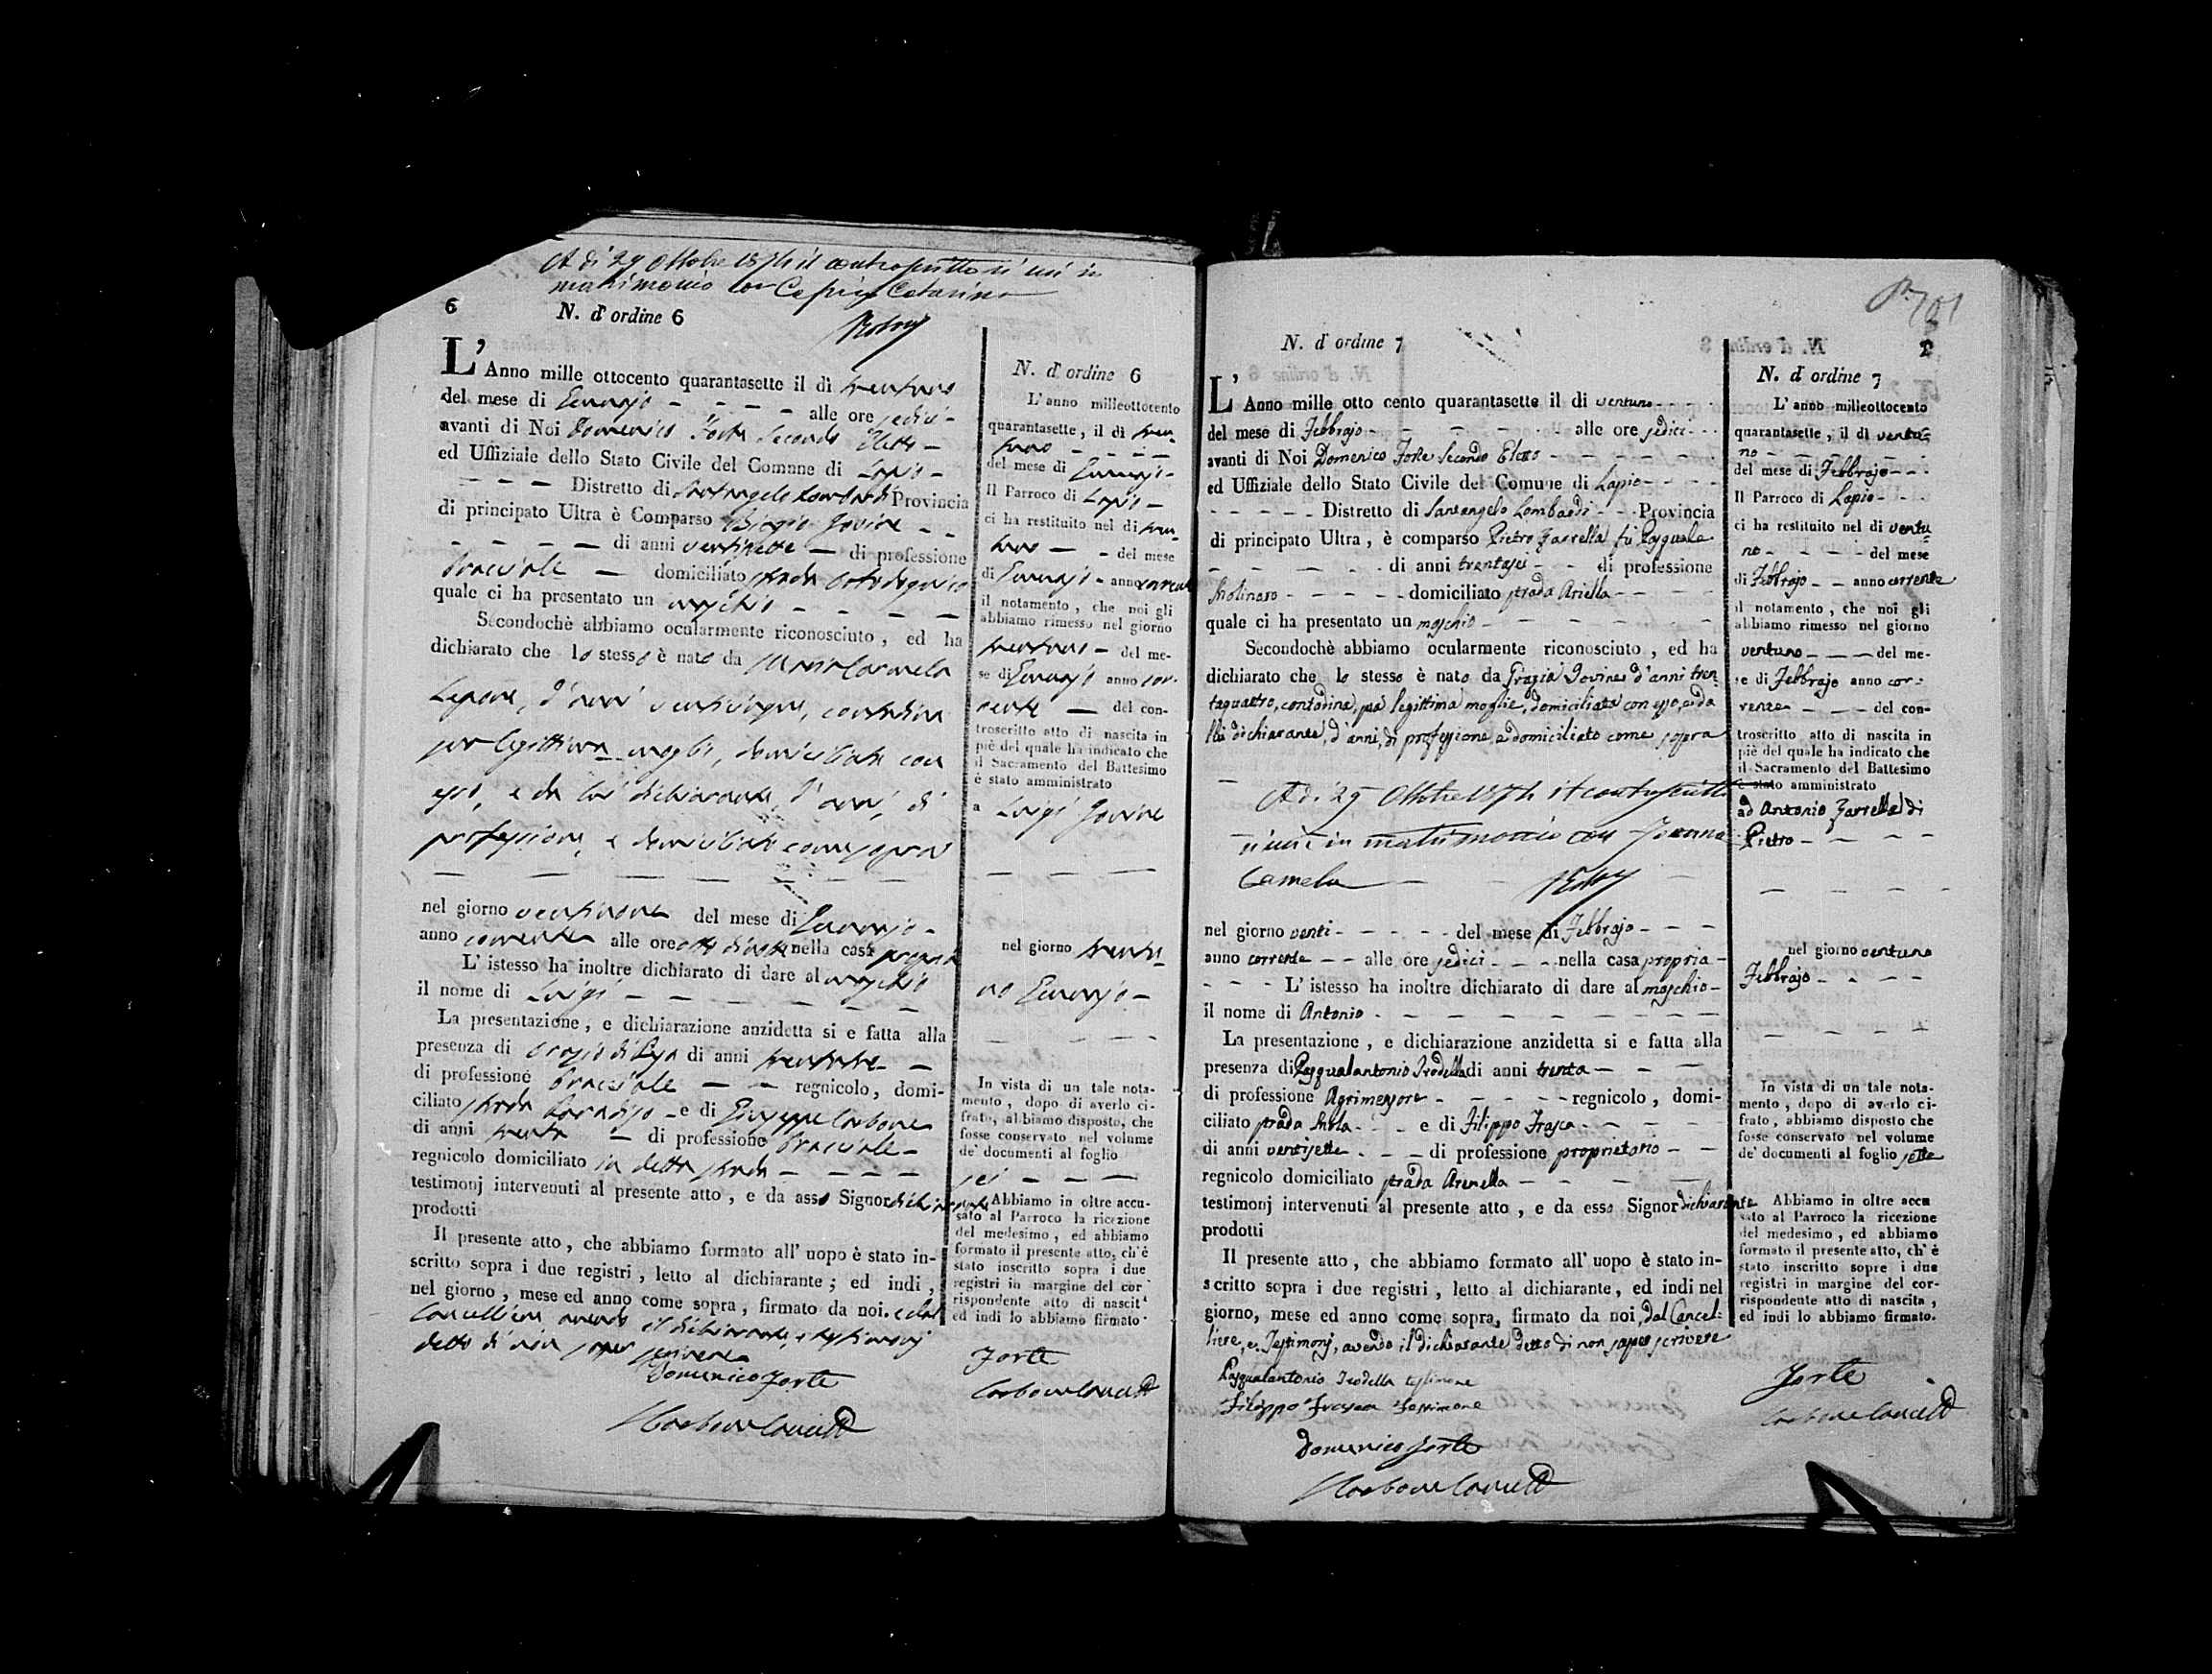 A di 29 Ottobre 1874 il controscritto si unì in
matrimonio con Catarina
6
N. d' ordine 6
L' Anno mille ottocento quarantasette il dì trentuno
del mese di Gennajo - - - - alle ore sedici -
avanti di Noi Domenico Forte Secondo Eletto -
ed Uffiziale dello Stato Civile del Comnne di Lapio -
- - - Distretto di Santangelo Lombardi Provincia
di principato Ultra è Comparso Biagio Jovine - -
- - - - di anni ventisette - di professione
bracciale - domiciliato strada
quale ci ha presentato un maschio - - - -
Secondochè abbiamo ocularmente riconosciuto, ed ha
dichiarato che lo stesso è nato da Maria Carmela
Lepore, d'anni venticinque, contadina
sua legittima moglie, domiciliata con
esso, e da lui dichiarante, d'anni, di
professione, e domiciliato come sopra
nel giorno ventinove del mese di Gennajo -
anno corrente alle ore otto di notte nella casa propria
L' istesso ha inoltre dichiarato di dare al maschio
il nome di Luigi - - - - -
La presentazione, e dichiarazione anzidetta si e fatta alla
presenza di Orazio di di anni trentatre - -
di professione bracciale - - regnicolo, domi-
ciliato strada Paradiso - e di Giuseppe Carbone
di anni trenta - di professione bracciale -
regnicolo domiciliato in detta strada - - - -
testimonj intervenuti al presente atto, e da asso Signor dichiarante
prodotti
Il presente atto, che abbiamo formato all' uopo è stato in-
scritto sopra i due registri, letto al dichiarante; ed indi,
nel giorno, mese ed anno come sopra, firmato da noi. e dal
Cancelliere avendo il dichiarante, e testimonj
detto di non saper scrivere
Domenico Forte
Carbone Cancell
N. d' ordine 6
L' anno milleottocento
quarantasette, il dì tren-
tuno - - - -
del mese di Gennajo -
Il Parroco di Lapio -
ci ha restituito nel dì tren-
tuno - - del mese
di Gennajo - anno corrente
il notamento, che noi gli
abbiamo rimesso nel giorno
trentuno - del me-
se di Gennajo anno cor-
rente - del con-
troscritto atto di nascita in
piè del quale ha indicato che
il Sacramento del Battesimo
è stato amministrato
a Luigi Jovine
- - -
nel giorno trentu-
no Gennajo -
- - - -
In vista di un tale nota-
mento, dopo di averlo ci-
frato, abbiamo disposto, che
fosse conservato nel volume
de' documenti al foglio
sei - - -
Abbiamo in oltre accu-
sato al Parroco la ricezione
del medesimo, ed abbiamo
formato il presente atto, ch' è
stato inscritto sopra i due
registri in margine del cor
rispondente atto di nascit'
ed indi lo abbiamo firmato.
Forte
Carbone Cancell
701
N. d' ordine 7
L' Anno mille otto cento quarantasette il di ventuno - - -
del mese di Febbrajo - - - - - - alle ore sedici - - -
avanti di Noi Domenico Forte Secondo Eletto - - - - -
ed Uffiziale dello Stato Civile del Comune di Lapio - - - -
- - - - - Distretto di Santangelo Lombardi - - Provincia
di principato Ultra, è comparso Pietro Zarrella fù Pasquale
- - - - - di anni trentasei - - di professione
Molinaro - - - - - domiciliato strada Ariella - - - -
quale ci ha presentato un maschio - - - - - - -
Secondochè abbiamo ocularmente riconosciuto, ed ha
dichiarato che lo stesso è nato da Grazia Jovine, d'anni tren-
taquattro, contadina, sua legittima moglie, domiciliata con esso, e da
lui dichiarante, d'anni, di professione, e domiciliato come sopra
A di 29 Ottobre 1874 il controscritto
si unì in matrimonio con Joanna
Camela
nel giorno venti - - - - - del mese di Febbrajo - - -
anno corrente - - alle ore sedici - - - nella casa propria -
- - - L' istesso ha inoltre dichiarato di dare al maschio -
il nome di Antonio - - - - - - - - -
La presentazione, e dichiarazione anzidetta si e fatta alla
presenza di Pasqualantonio Trodella di anni trenta - - -
di professione Agrimensore - - - - - regnicolo, domi-
ciliato strada Mola - - - e di Filippo Frasca - - - -
di anni ventisette - - - di professione proprietario - -
regnicolo domiciliato strada Arenella - - - -
testimonj intervenuti al presente atto, e da esso Signor dichiarante
prodotti
Il presente atto, che abbiamo formato all' uopo è stato in-
scritto sopra i due registri, letto al dichiarante, ed indi nel
giorno, mese ed anno come sopra, firmato da noi, dal Cancel-
liere, e Testimonj, avendo il dichiarante detto di non saper scrivere
Pasqualantonio Trodella testimone
Filippo Frasca Testimone
Domenico Forte
Carbone Cancell
N. d' ordine 7
L' anno milleottocento
quarantasette, il dì ventu-
no - - - - -
del mese di Febbrajo - - -
Il Parroco di Lapio - - -
ci ha restituito nel di ventu-
no - - - - del mese
di Febbrajo - - anno corrente
il notamento, che noi gli
abbiamo rimesso nel giorno
ventuno - - - del me-
se di Febbrajo anno cor-
rente - - - del con-
troscritto atto di nascita in
piè del quale ha indicato che
il Sacramento del Battesimo
è stato amministrato
ad Antonio Zarrella di
Pietro - - - -
- - - - -
nel giorno ventuno
Febbrajo - - - -
- - - - -
In vista di un tale nota-
mento, dopo di averlo ci-
frato, abbiamo disposto che
fosse conservato nel volume
de' documenti al foglio sette
Abbiamo in oltre accu
sato al Parroco la ricezione
del medesimo, ed abbiamo
formato il presente atto, ch' è
stato inscritto sopre i due
registri in margine del cor-
rispondente atto di nascita,
ed indi lo abbiamo firmato.
Forte
Carbone Cancell